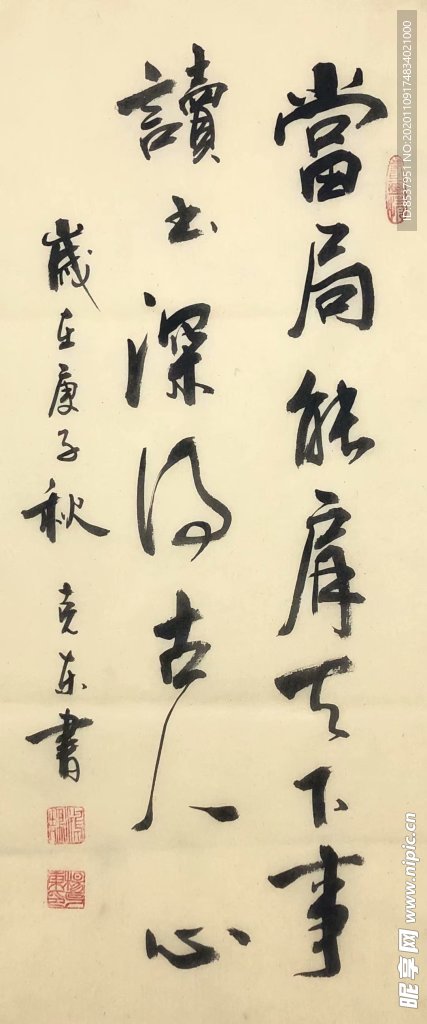 當局能肩天下事
讀书深得古人心
歲在庚子秋 克東書
ID:8537951 NO:20201109174834021000
昵享网 www.nipic.cn